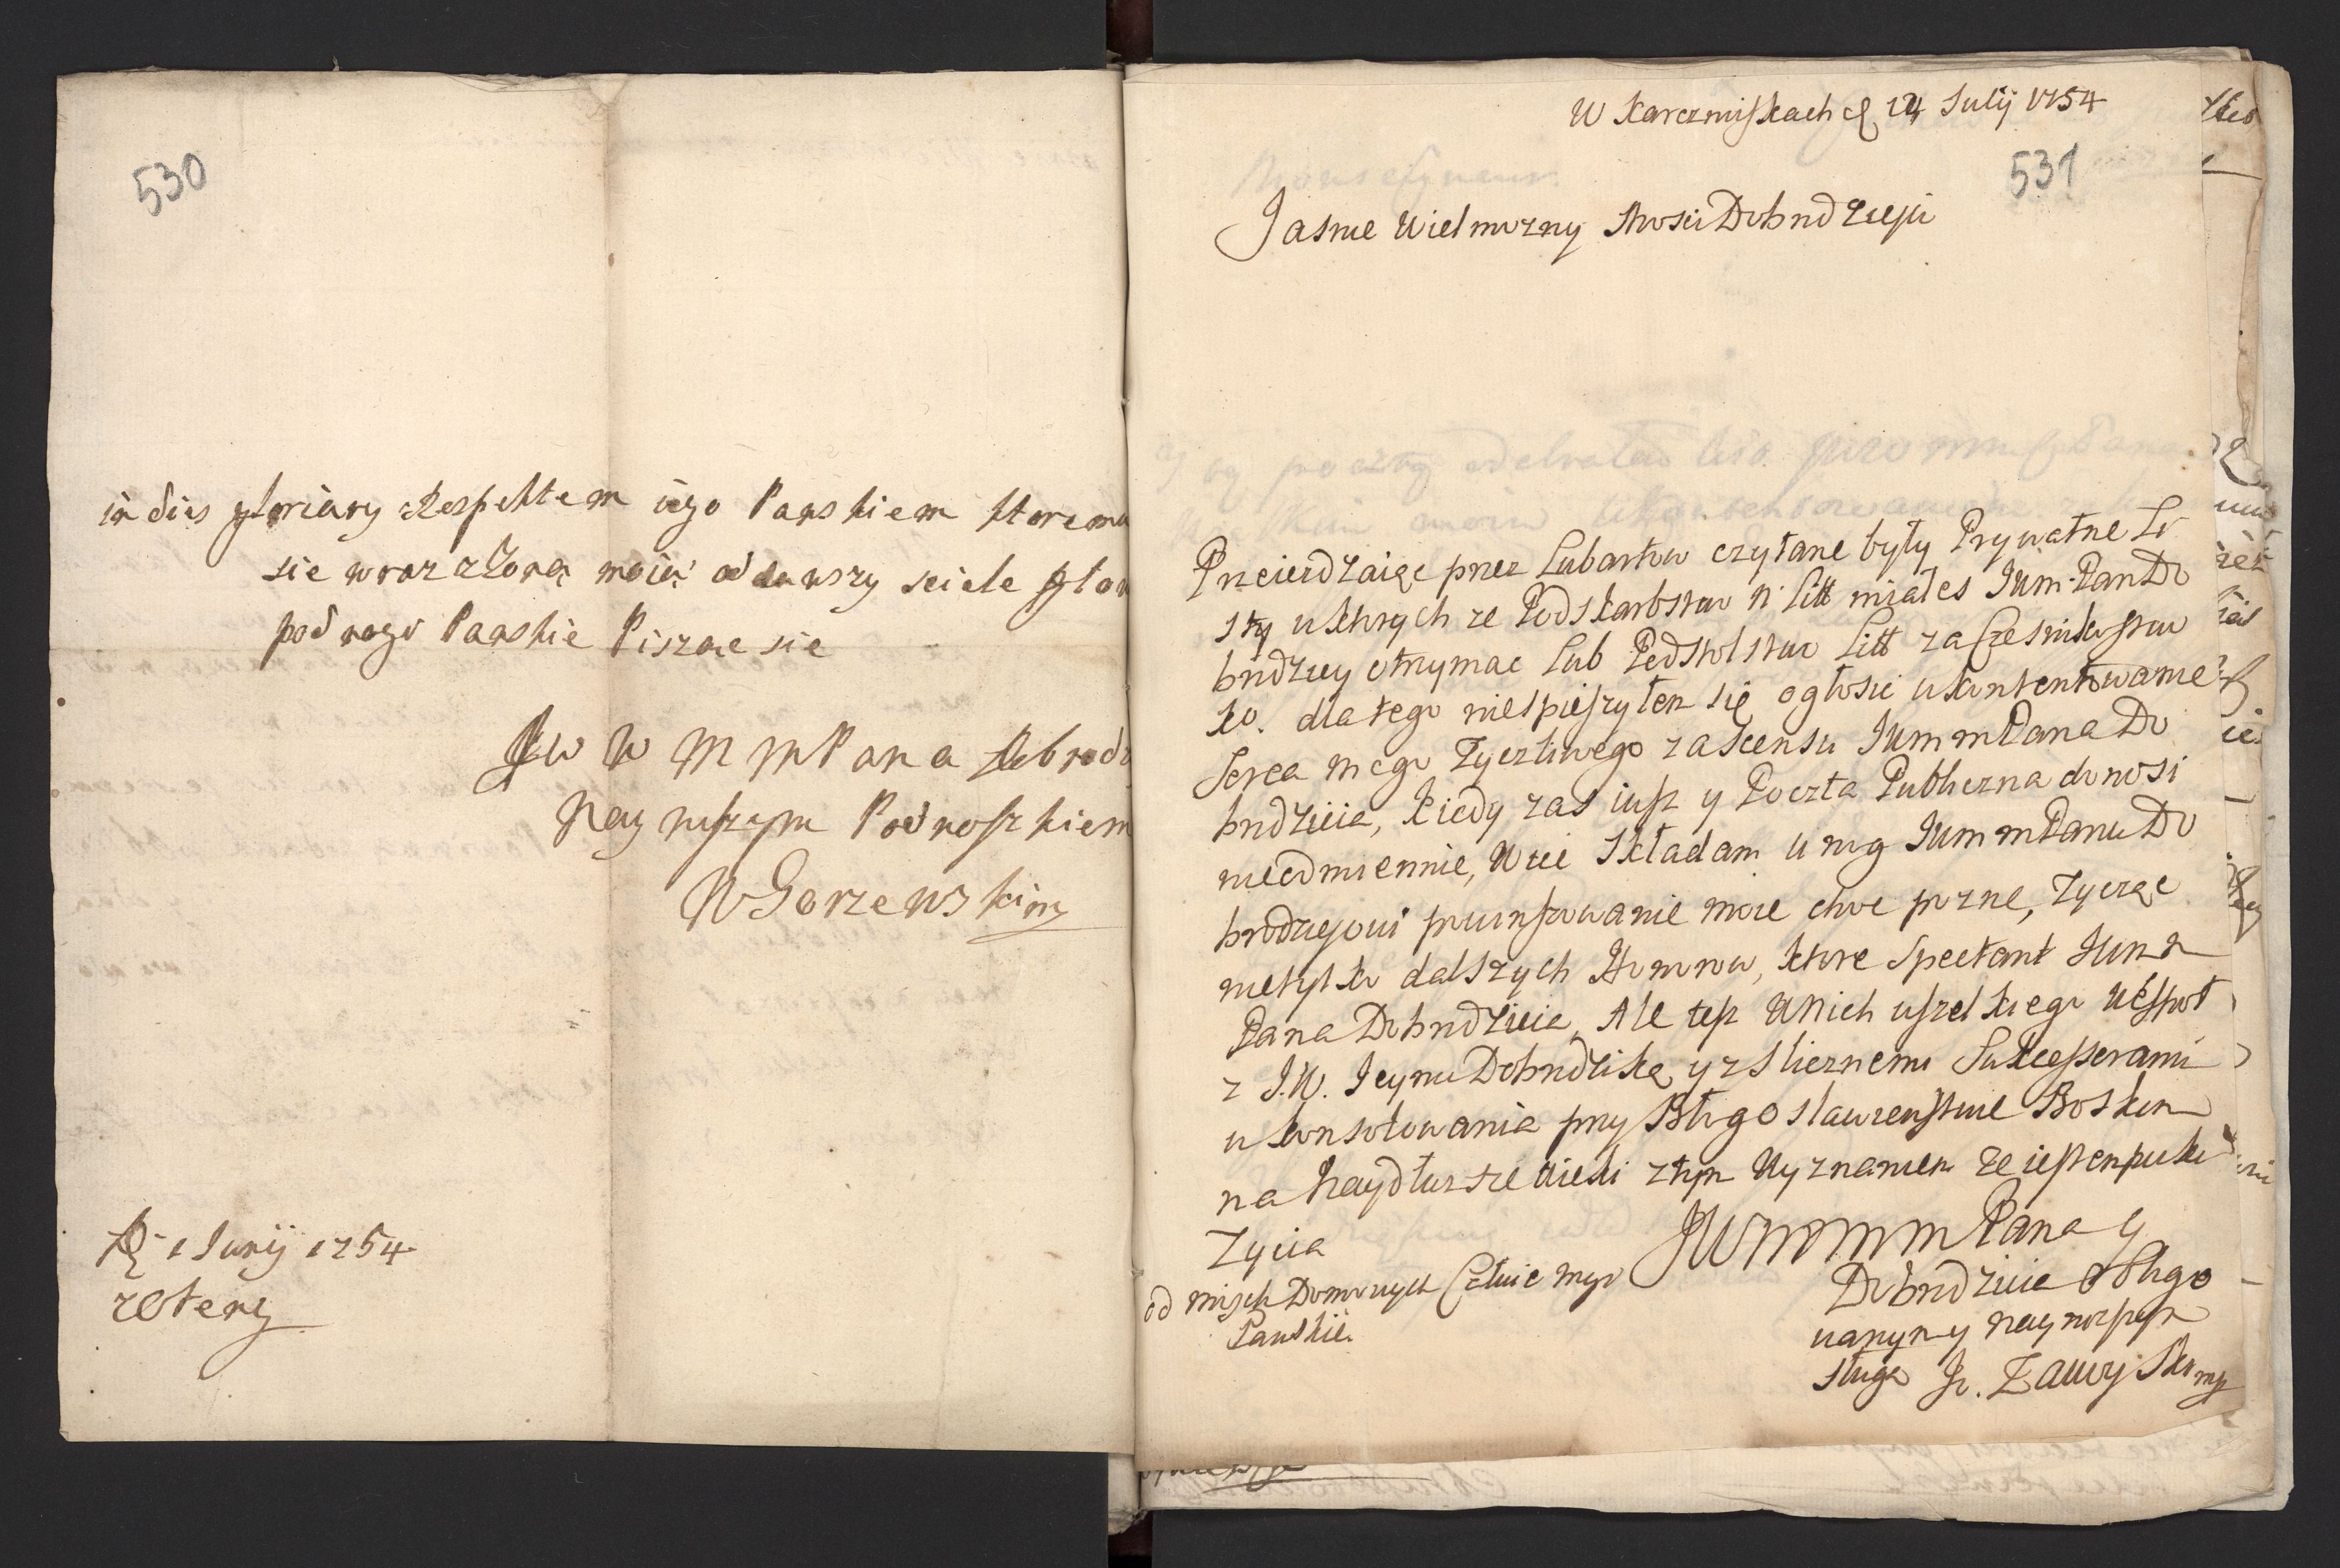 530
in dies gloriary Respektem iego Panskiem ktoremu
sie wraz z Żoną moią oddawszy sciele
pod nogi Panskie Pisząc sie
JW W M M Pana Dobrodz
Nay niższym Podnożkiem
WGorzewskim
D 1 Junij 1754
z Otery
W Karczmiskach d 24 Julij 1754
531
Jasnie Wielmozny Mosci Dobrodzieju
Przeiezdzaiąc przez Lubartow czytane były Prywatne Li
sty w ktorych ze Podskarbstwo N Litt miałes JWm Pan Do
brodziey otrzymac lub Podstolstwo Litt za Czesnikostwo
ko. dla tego niespieszyłem się ogłosic ukontentowanie
Serca mego Zyczliwego z ascensu JWm m Pana Do
brodzieia, kiedy zas iusz y Poczta Publiczna donosi
nieodmiennie, Wiec składam u nog JWm m Panu Do
brodzieiowi powinszowanie moie choc pozne, Zycząc
nietylko dalszych Honorow, ktore Spectant JWm
Pana Dobrodzieia, Ale tesz W Nich wszelkiego Wespoł
z J.W. Jeymc Dobrodzika y z slicznemi Sukcessorami
ukonsolowania przy Błogosławienstwie Boskim
na Naydłuzsze Wieki z tym Wyznaniem Ze iestem puki
Zycia
JWM m m Pana y
Dobrodzieia obligo
wanym y nayniszym
sługa J. Zawoyski mp
od moich Domowych Całuie nogi
Panskie.